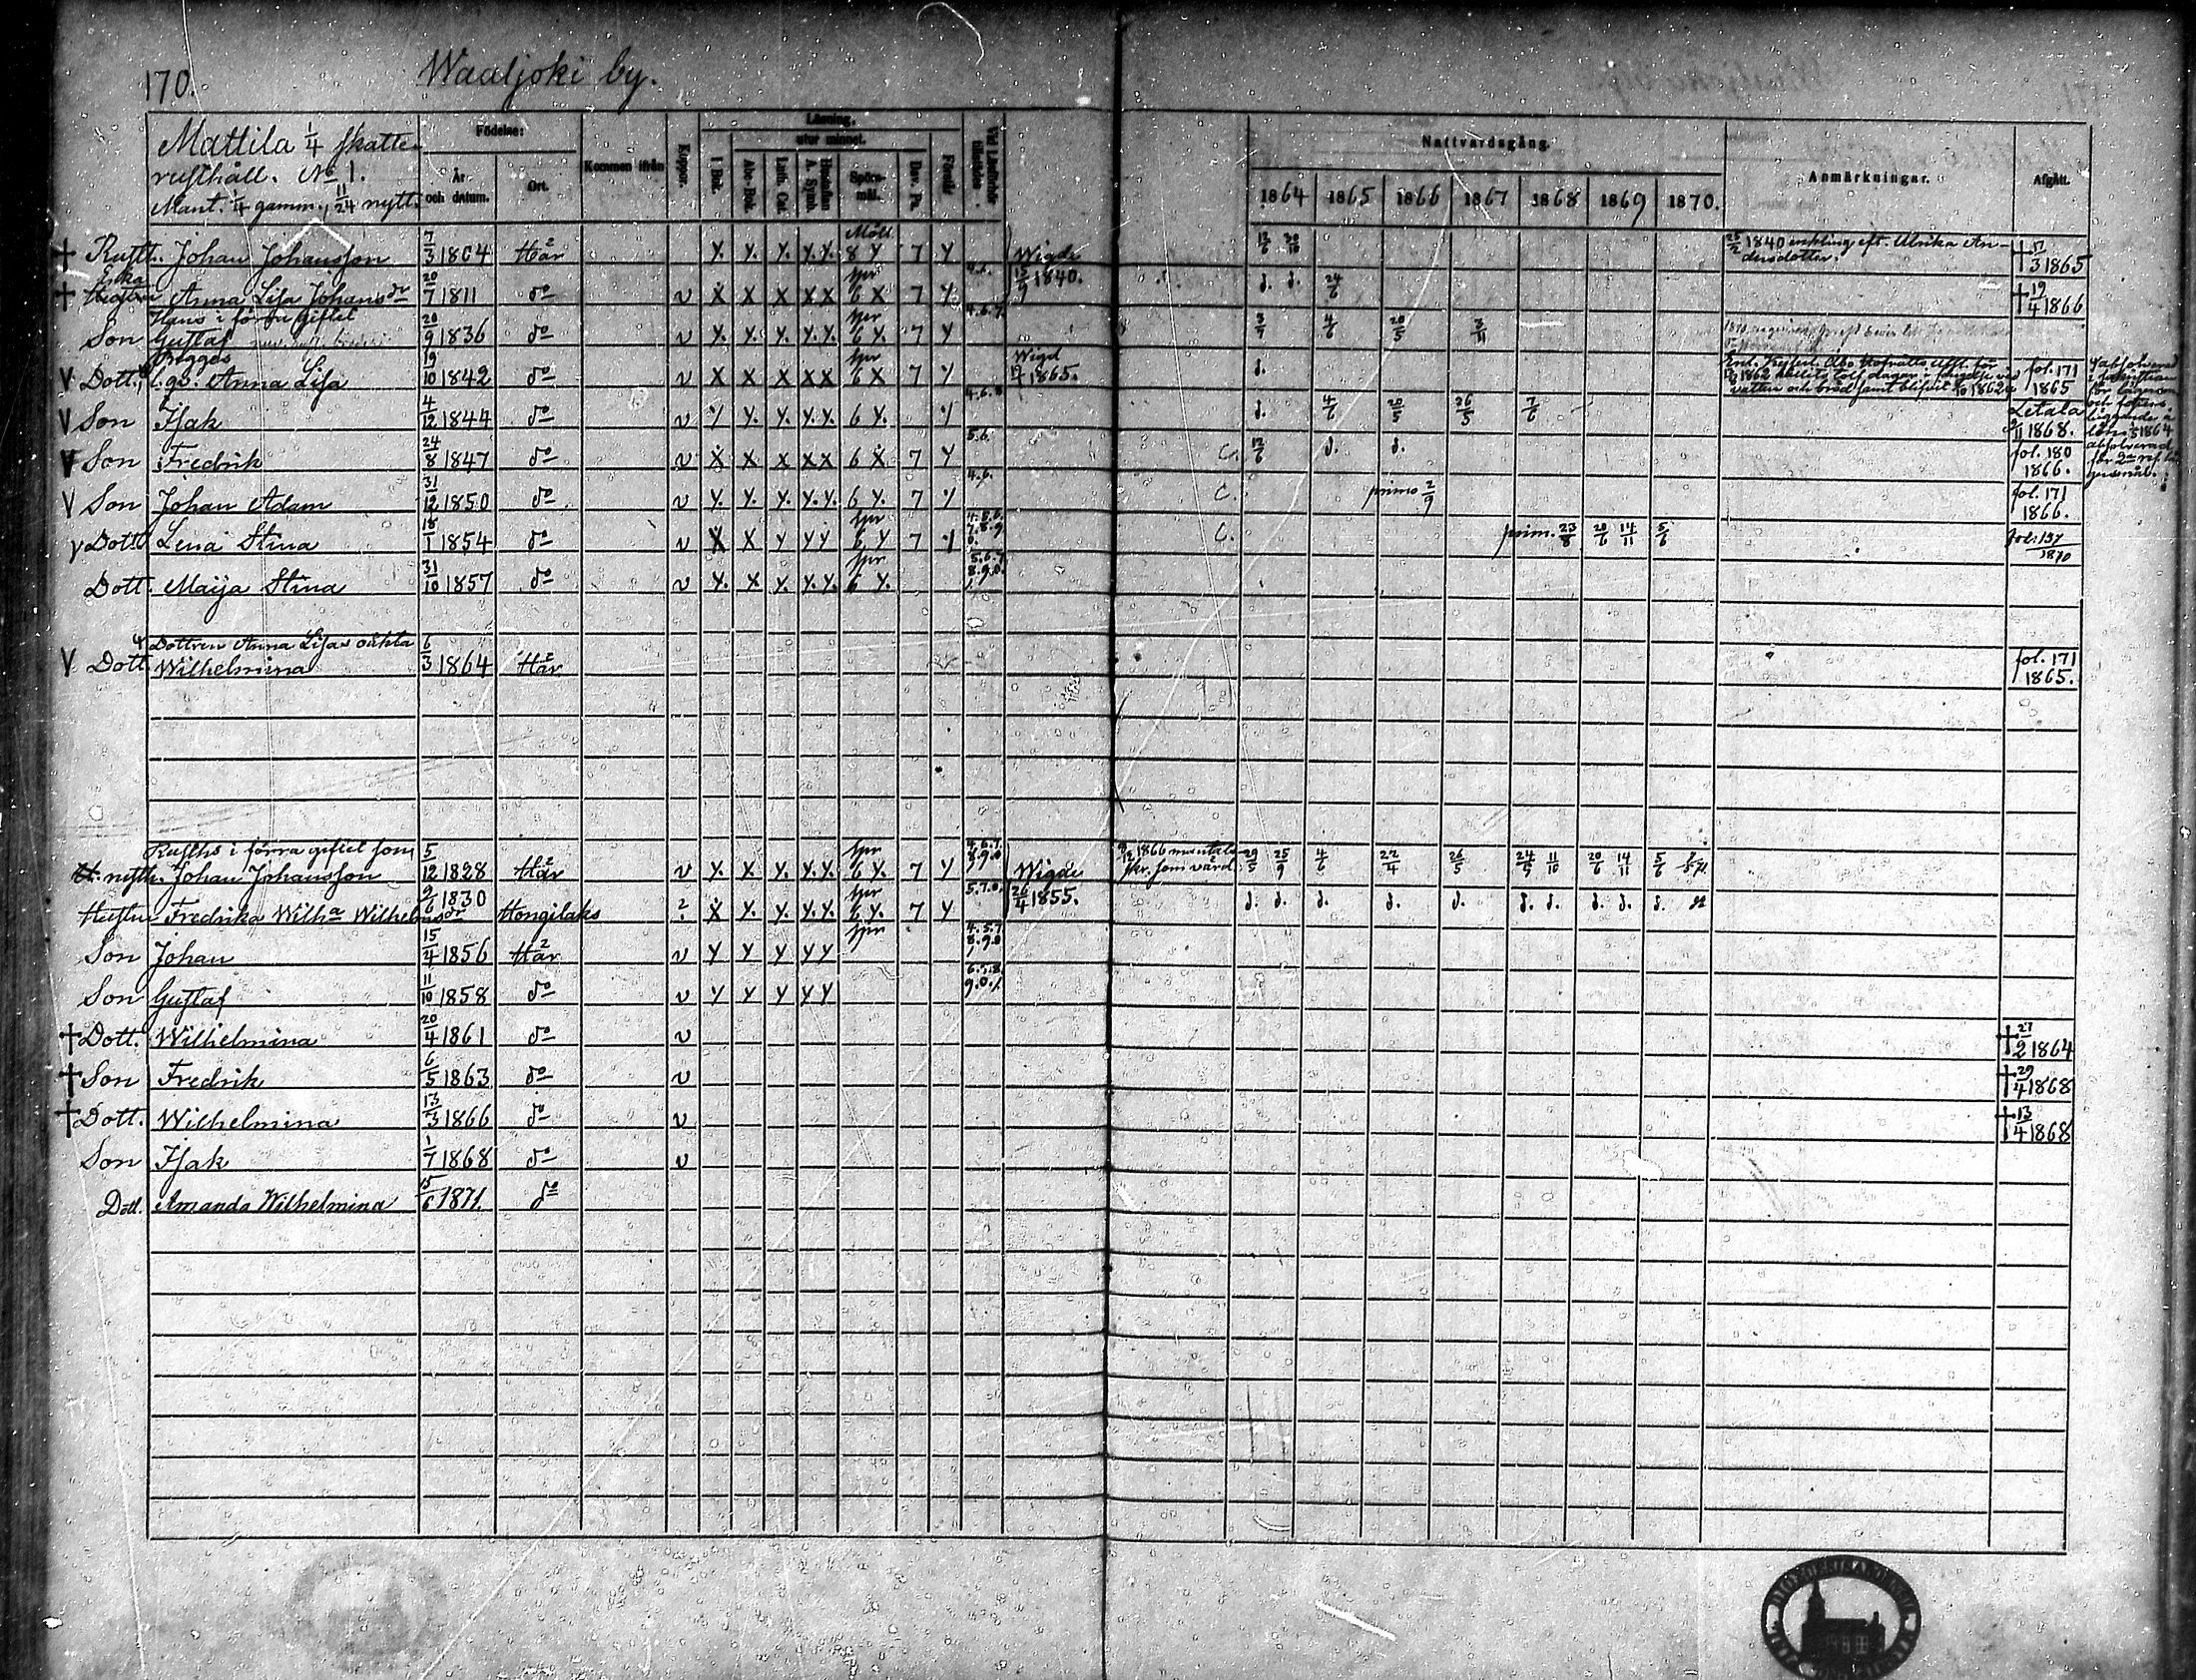 170. Waaljoki by.
Mattila 1/4 skatte
rusthåll. No 1.
Mant. 1/4 gamm., 11/24 nytt.
Födelse:
År och datum.
Ort.
Kommen ifrån
Koppor.
Läsning,
utur minnet.
I Bok.
Abc. Bok.
Luth. Cat.
Hustaflan A. Symb.
Spörsmål.
Dav. Ps.
Förstår
Nattvardsgång.
1864 1865 1866 1867 1868 1869 1870.
Anmärkningar.
Afgått.
† Rusth. Johan Johansson 7/3 1804 Här y. y. y. y.y. Möll 8 y 7 y Wigde 12/6 30/10 25/2 1840 enkling eft. Ulrika Andersdotter. † 17/3 1865
† Enka Hustru Anna Lisa Johansdr 20/7 1811 do v x x x x x spr 6 x 7 y 15/9 1840. d. d. 24/6 † 19/4 1866
Hans i förra giftet
Son Gustaf 20/9 1836 do v y. y. y. y.y. spr 6 y. 7 y 4.6.7. 3/7 4/6 20/5 3/11
Begges
V Dott. Anna Lisa 19/10 1842 do v x x x x x spr 6 x 7 y Wigd 1865. d. fol. 171 1865
V Son Isak 4/12 1844 do v y y. y. y.y. 6 y. y 4.6.8 d. 4/6 20/5 26/5 7/6 Letala 1868.
V Son Fredrik 24/8 1847 do v x x x x x 6 x 7 y 5.6. C. 12/6 d. d. fol. 180 1866.
V Son Johan Adam 31/12 1850 do v y. y. y. y.y. 6 y. 7 y 4.6. C. primo 2/9 fol. 171 1866.
V Dott Lena Stina 18/1 1854 do v x x y y y spr 6 y 7 y C. prim. 23/8 20/6 14/11 5/6 fol. 137 1870
Dott. Maija Stina 31/10 1857 do v y. x y. y.y. spr 6 y. 5.6.7. 8.9.0.
Dottren Anna Lisas oäkta
V Dott. Wilhelmina 6/3 1864 Här fol. 171 1865.
Rusths i förra giftet son
rusth. Johan Johansson 5/12 1828 Här v y. y. y. y.y. spr 6 y. 7 y 4.6.7. 8.9.0. Wigde 1866 mantals skr. som värd. 29/5 25/9 4/6 22/4 26/5 24/5 11/10 20/6 14/11 5/6
Hustru Fredrika Wilha Wilhelmsdr 2/6 1830 Hongilaks ? x y. y. y.y. spr 6 y. 7 y 5.7.0. 26/4 1855. d. d. d. d. d. d. d. d. d. d.
Son Johan 15/4 1856 Här v y y y y y spr 4.5.7 8.9.0
Son Gustaf 11/10 1858 do v y y y y y 6.7.8. 9.0.1.
† Dott. Wilhelmina 20/4 1861 do v † 27/2 1864
† Son Fredrik 6/5 1863 do v † 29/4 1868
† Dott. Wilhelmina 13/3 1866 do v † 13/4 1868
Son Isak 1/7 1868 do v
Dott. Amanda Wilhelmina 15/6 1871. do